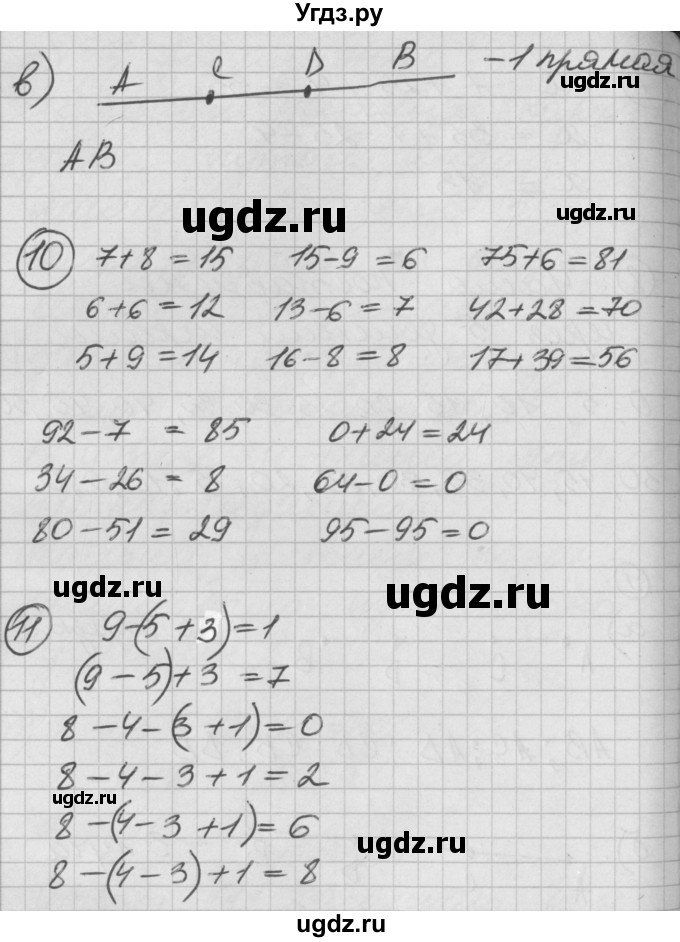 Угдз.ру
в) A C D B – 1 прямая
ugdz.ru
AB
ugdz.ru
ugdz.ru
10 7+8=15 15-9=6 75+6=81
6+6=12 13-6=7 42+28=70
5+9=14 16-8=8 17+39=56
92-7=85 0+24=24
34-26=8 64-0=0
80-51=29 95-95=0
ugdz.ru
ugdz.ru
11 9-(5+3)=1
(9-5)+3=7
8-4-(3+1)=0
8-4-3+1=2
ugdz.ru
8-(4-3+1)=6
ugdz.ru
8-(4-3)+1=8
ugdz.ru